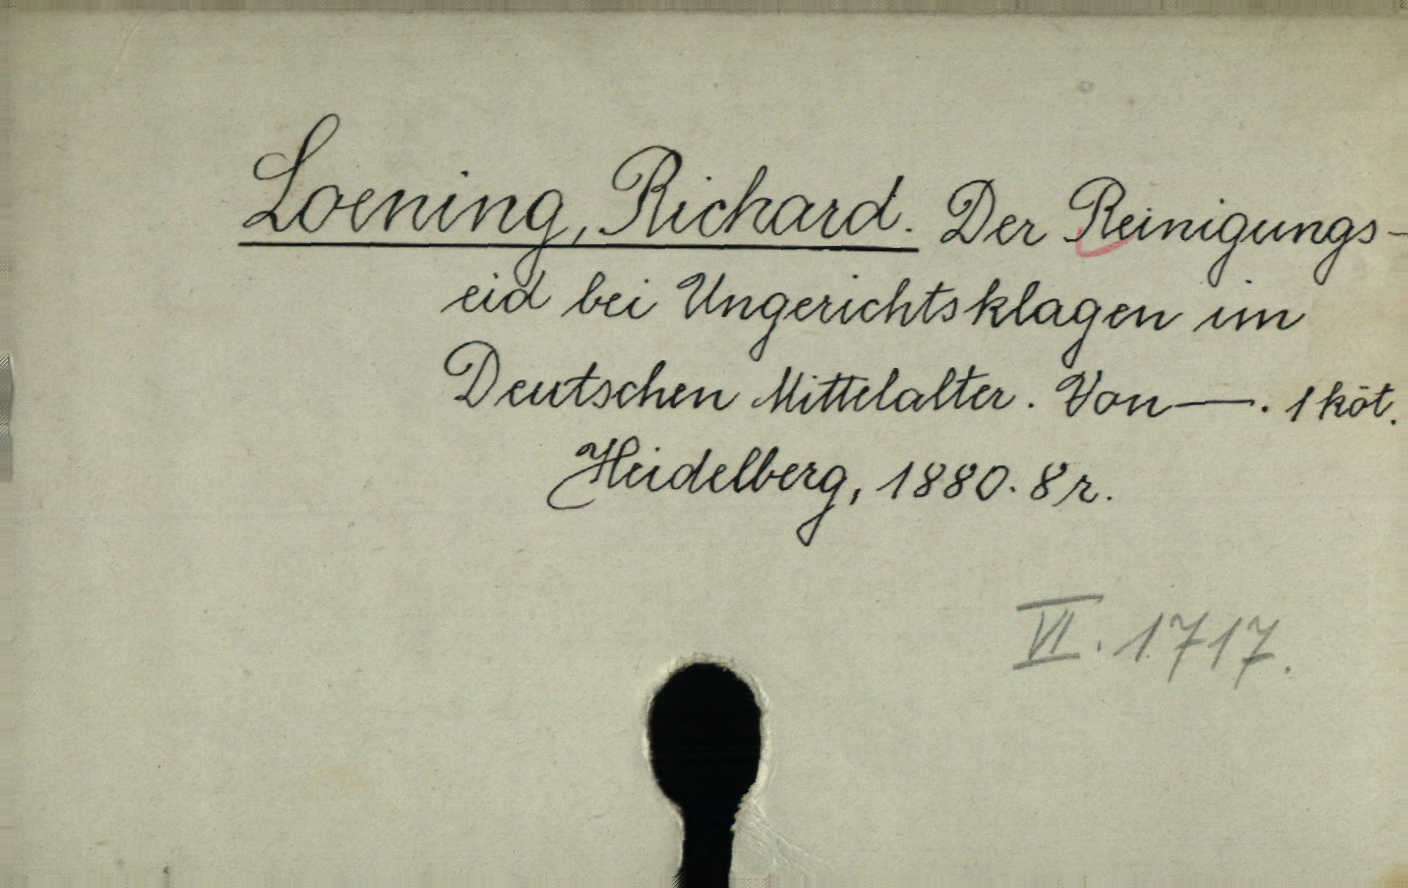 Loening, Richard. Der Reinigungs-
eid bei Ungerichtsklagen im
Deutschen Mittelalter. Von —. 1 köt.
Heidelberg, 1880. 8r.
VI. 1717.